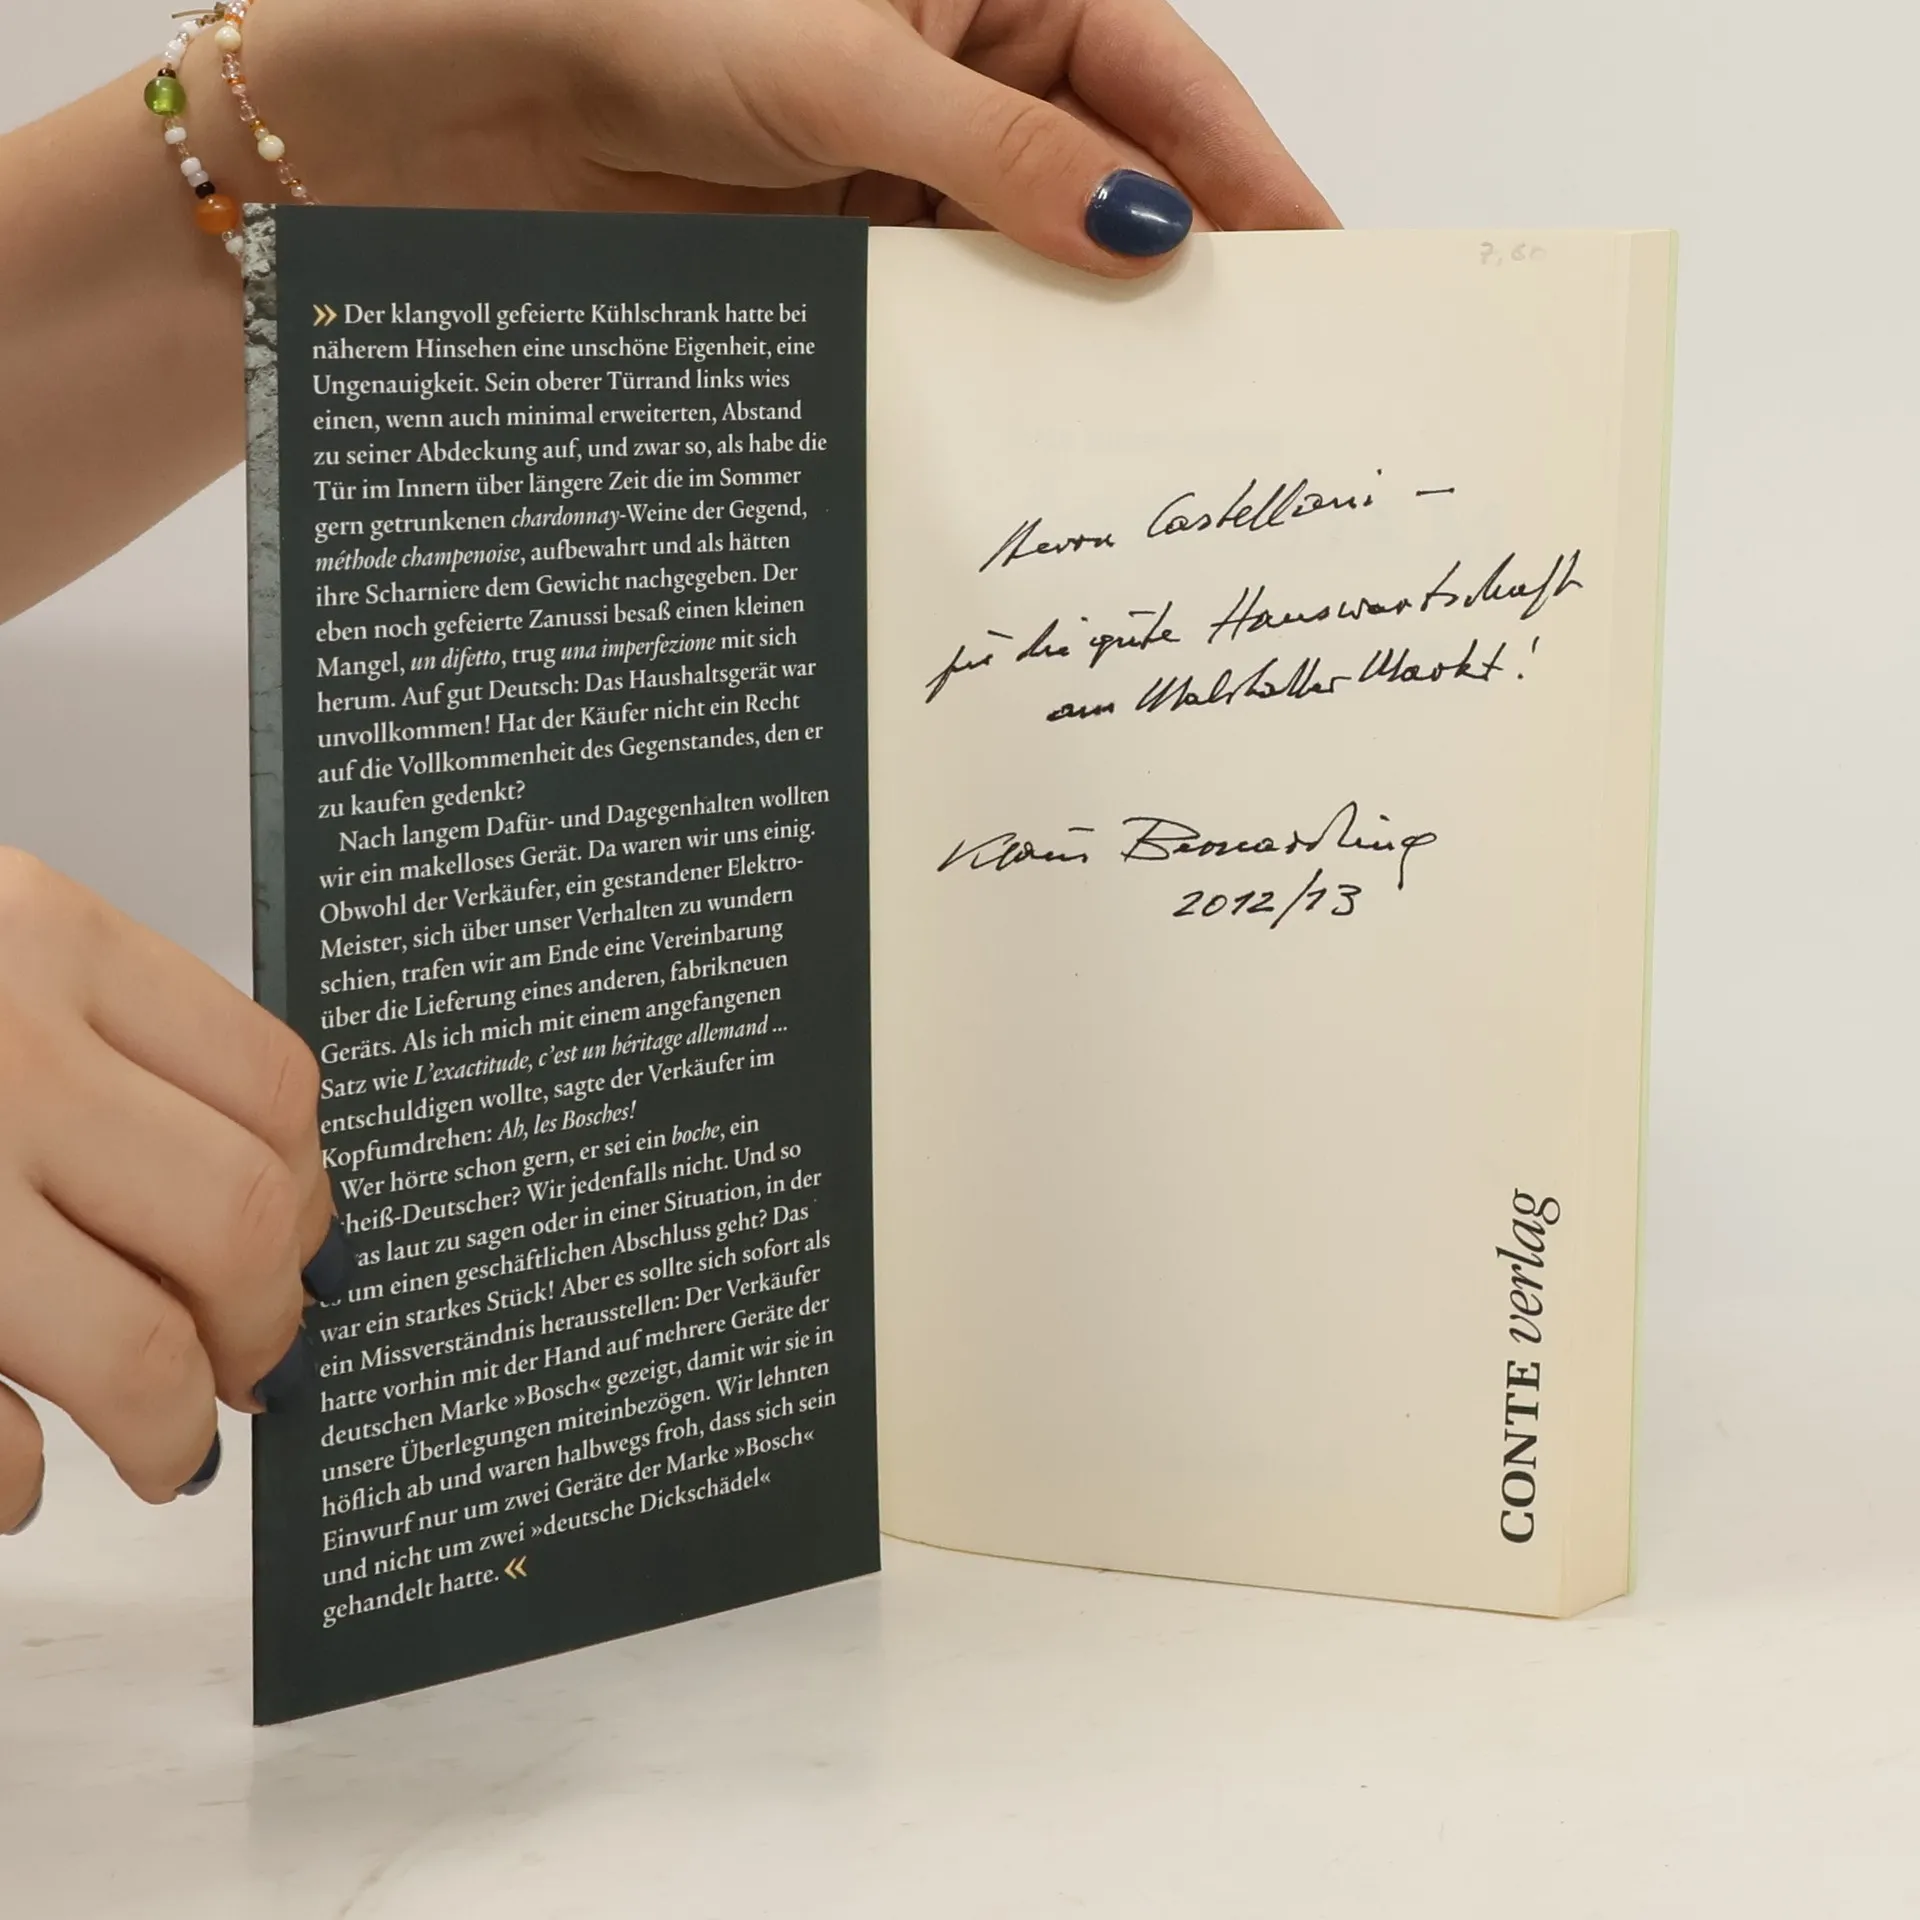 » Der klangvoll gefeierte Kühlschrank hatte bei
näherem Hinsehen eine unschöne Eigenheit, eine
Ungenauigkeit. Sein oberer Türrand links wies
einen, wenn auch minimal erweiterten, Abstand
zu seiner Abdeckung auf, und zwar so, als habe die
Tür im Innern über längere Zeit die im Sommer
gern getrunkenen chardonnay-Weine der Gegend,
méthode champenoise, aufbewahrt und als hätten
ihre Scharniere dem Gewicht nachgegeben. Der
eben noch gefeierte Zanussi besaß einen kleinen
Mangel, un difetto, trug una imperfezione mit sich
herum. Auf gut Deutsch: Das Haushaltsgerät war
unvollkommen! Hat der Käufer nicht ein Recht
auf die Vollkommenheit des Gegenstandes, den er
zu kaufen gedenkt?
Nach langem Dafür- und Dagegenhalten wollten
wir ein makelloses Gerät. Da waren wir uns einig.
Obwohl der Verkäufer, ein gestandener Elektro-
Meister, sich über unser Verhalten zu wundern
schien, trafen wir am Ende eine Vereinbarung
über die Lieferung eines anderen, fabrikneuen
Geräts. Als ich mich mit einem angefangenen
Satz wie L'exactitude, c'est un héritage allemand ...
entschuldigen wollte, sagte der Verkäufer im
Kopfumdrehen: Ah, les Bosches!
Wer hörte schon gern, er sei ein boche, ein
heiß-Deutscher? Wir jedenfalls nicht. Und so
as laut zu sagen oder in einer Situation, in der
um einen geschäftlichen Abschluss geht? Das
war ein starkes Stück! Aber es sollte sich sofort als
ein Missverständnis herausstellen: Der Verkäufer
hatte vorhin mit der Hand auf mehrere Geräte der
deutschen Marke »Bosch« gezeigt, damit wir sie in
unsere Überlegungen miteinbezögen. Wir lehnten
höflich ab und waren halbwegs froh, dass sich sein
Einwurf nur um zwei Geräte der Marke »Bosch«
und nicht um zwei »deutsche Dickschädel«
gehandelt hatte. «
7,60
Herrn Castellani –
für die gute Hauswartschaft
am Malstatter Markt!
Klaus Bernarding
2012/13
CONTE verlag